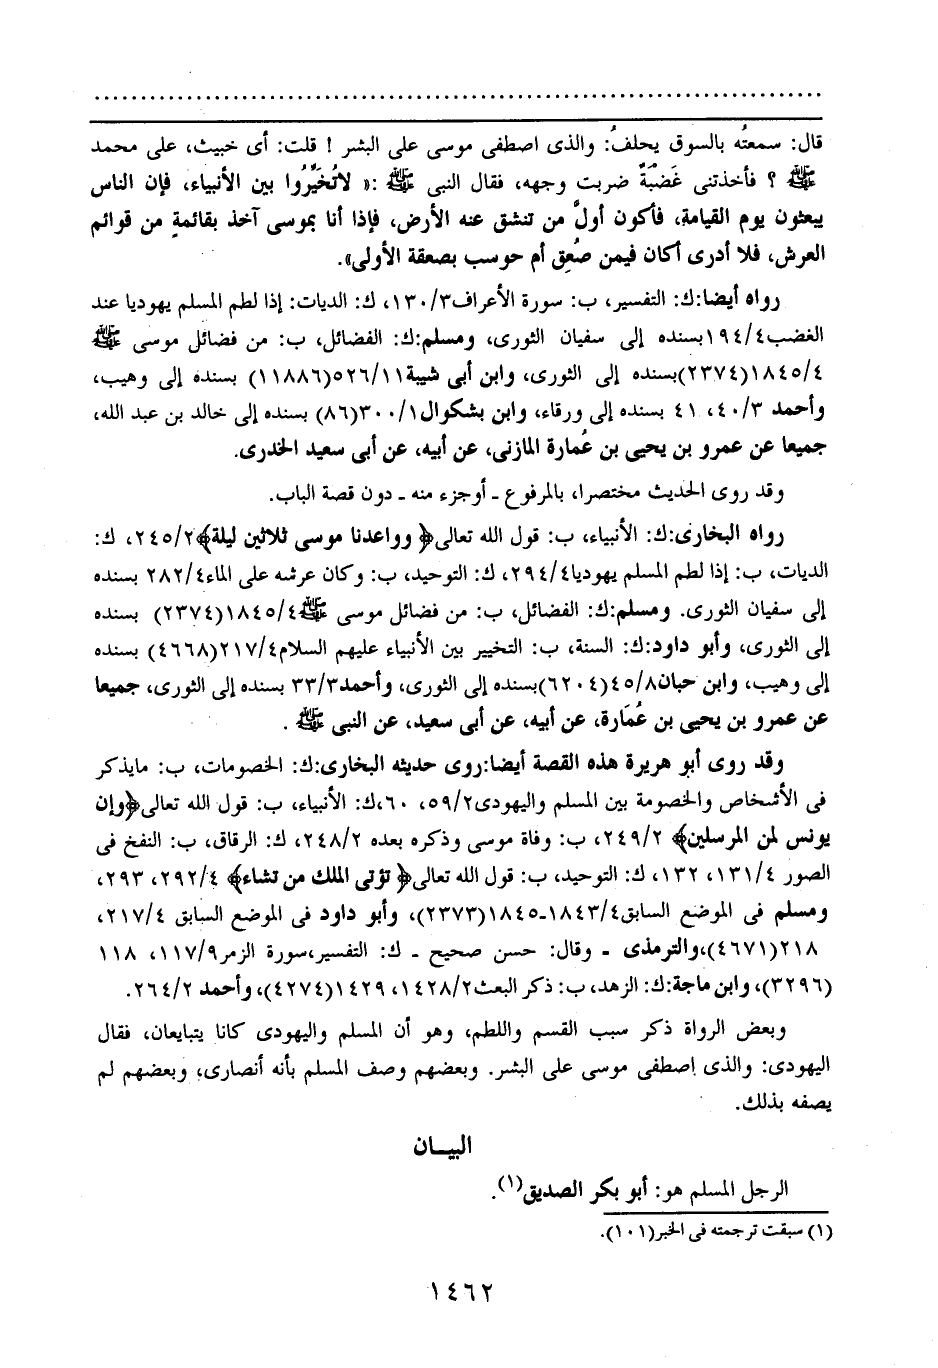 قال: سمعتُه بالسوق يحلفُ: والذى اصطفى موسى على البشر ! قلت: أى خبيث، على محمد
ﷺ ؟ فأخذتنى غَضْبَةٌ ضربت وجهه، فقال النبى ﷺ :« لاتُخَيِّرُوا بين الأنبياء، فإن الناس
يبعثون يوم القيامة، فأكون أولَّ من تنشق عنه الأرض، فإذا أنا بموسى آخذ بقائمةٍ من قوائم
العرش، فلا أدرى أكان فيمن صُعِق أم حوسب بصعقة الأولى».
رواه أيضا:ك: التفسير، ب: سورة الأعراف١٣٠/٣، ك: الديات: إذا لطم المسلم يهوديا عند
الغضب١٩٤/٤بسنده إلى سفيان الثورى، ومسلم:ك: الفضائل، ب: من فضائل موسى ﷺ
١٨٤٥/٤(٢٣٧٤)بسنده إلى الثورى، وابن أبى شيبة٥٢٦/١١(١١٨٨٦) بسنده إلى وهيب،
وأحمد ٤٠/٣، ٤١ بسنده إلى ورقاء، وابن بشكوال٣٠٠/١(٨٦) بسنده إلى خالد بن عبد الله،
جميعا عن عمرو بن يحيى بن عُمارة المازنى، عن أبيه، عن أبى سعيد الخدرى.
وقد روى الحديث مختصرا، بالمرفوع ـ أوجزء منه ـ دون قصة الباب.
رواه البخارى:ك: الأنبياء، ب: قول الله تعالى﴿ وواعدنا موسى ثلاثين ليلة﴾٢٤٥/٢، ك:
الديات، ب: إذا لطم المسلم يهوديا٢٩٤/٤، ك: التوحيد، ب: وكان عرشه على الماء٢٨٢/٤ بسنده
إلى سفيان الثورى. ومسلم:ك: الفضائل، ب: من فضائل موسى ﷺ١٨٤٥/٤(٢٣٧٤) بسنده
إلى الثورى، وأبو داود:ك: السنة، ب: التخيير بين الأنبياء عليهم السلام٢١٧/٤(٤٦٦٨) بسنده
إلى وهيب، وابن حبان٤٥/٨(٦٢٠٤)بسنده إلى الثورى، وأحمد٣٣/٣ بسنده إلى الثورى، جميعا
عن عمرو بن يحيى بن عُمَارة، عن أبيه، عن أبى سعيد، عن النبى ﷺ .
وقد روى أبو هريرة هذه القصة أيضا:روى حديثه البخارى:ك: الخصومات، ب: مايذكر
فى الأشخاص والخصومة بين المسلم واليهودى٥٩/٢، ٦٠،ك: الأنبياء، ب: قول الله تعالى﴿وإن
يونس لمن المرسلين﴾ ٢٤٩/٢، ب: وفاة موسى وذكره بعده ٢٤٨/٢، ك: الرقاق، ب: النفخ فى
الصور ١٣١/٤، ١٣٢، ك: التوحيد، ب: قول الله تعالى﴿ تؤتى الملك من تشاء﴾ ٢٩٢/٤، ٢٩٣،
ومسلم فى الموضع السابق١٨٤٣/٤ـ١٨٤٥(٢٣٧٣)، وأبو داود فى الموضع السابق ٢١٧/٤،
٢١٨(٤٦٧١)،والترمذى ـ وقال: حسن صحيح ـ ك: التفسير،سورة الزمر١١٧/٩، ١١٨
(٣٢٩٦)، وابن ماجة:ك: الزهد، ب: ذكر البعث١٤٢٨/٢، ١٤٢٩(٤٢٧٤)، وأحمد ٢٦٤/٢.
وبعض الرواة ذكر سبب القسم واللطم، وهو أن المسلم واليهودى كانا يتبايعان، فقال
اليهودى: والذى إصطفى موسى على البشر. وبعضهم وصف المسلم بأنه أنصارى، وبعضهم لم
يصفه بذلك.
البيــان
الرجل المسلم هو: أبو بكر الصديق(١).
(١) سبقت ترجمته فى الخبر(١٠١).
١٤٦٢